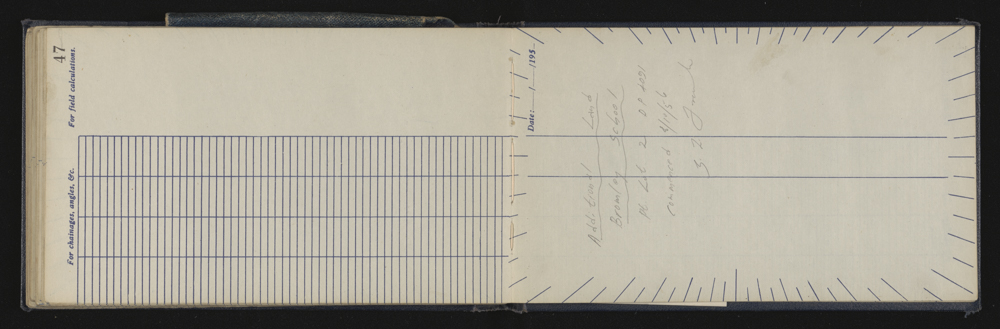 47
For field calculations.
For chainages, angles, &c.
Date: / /195
Additional Land
Bromley School
Pt Lot 2 DP 4091
commenced 2/10/56